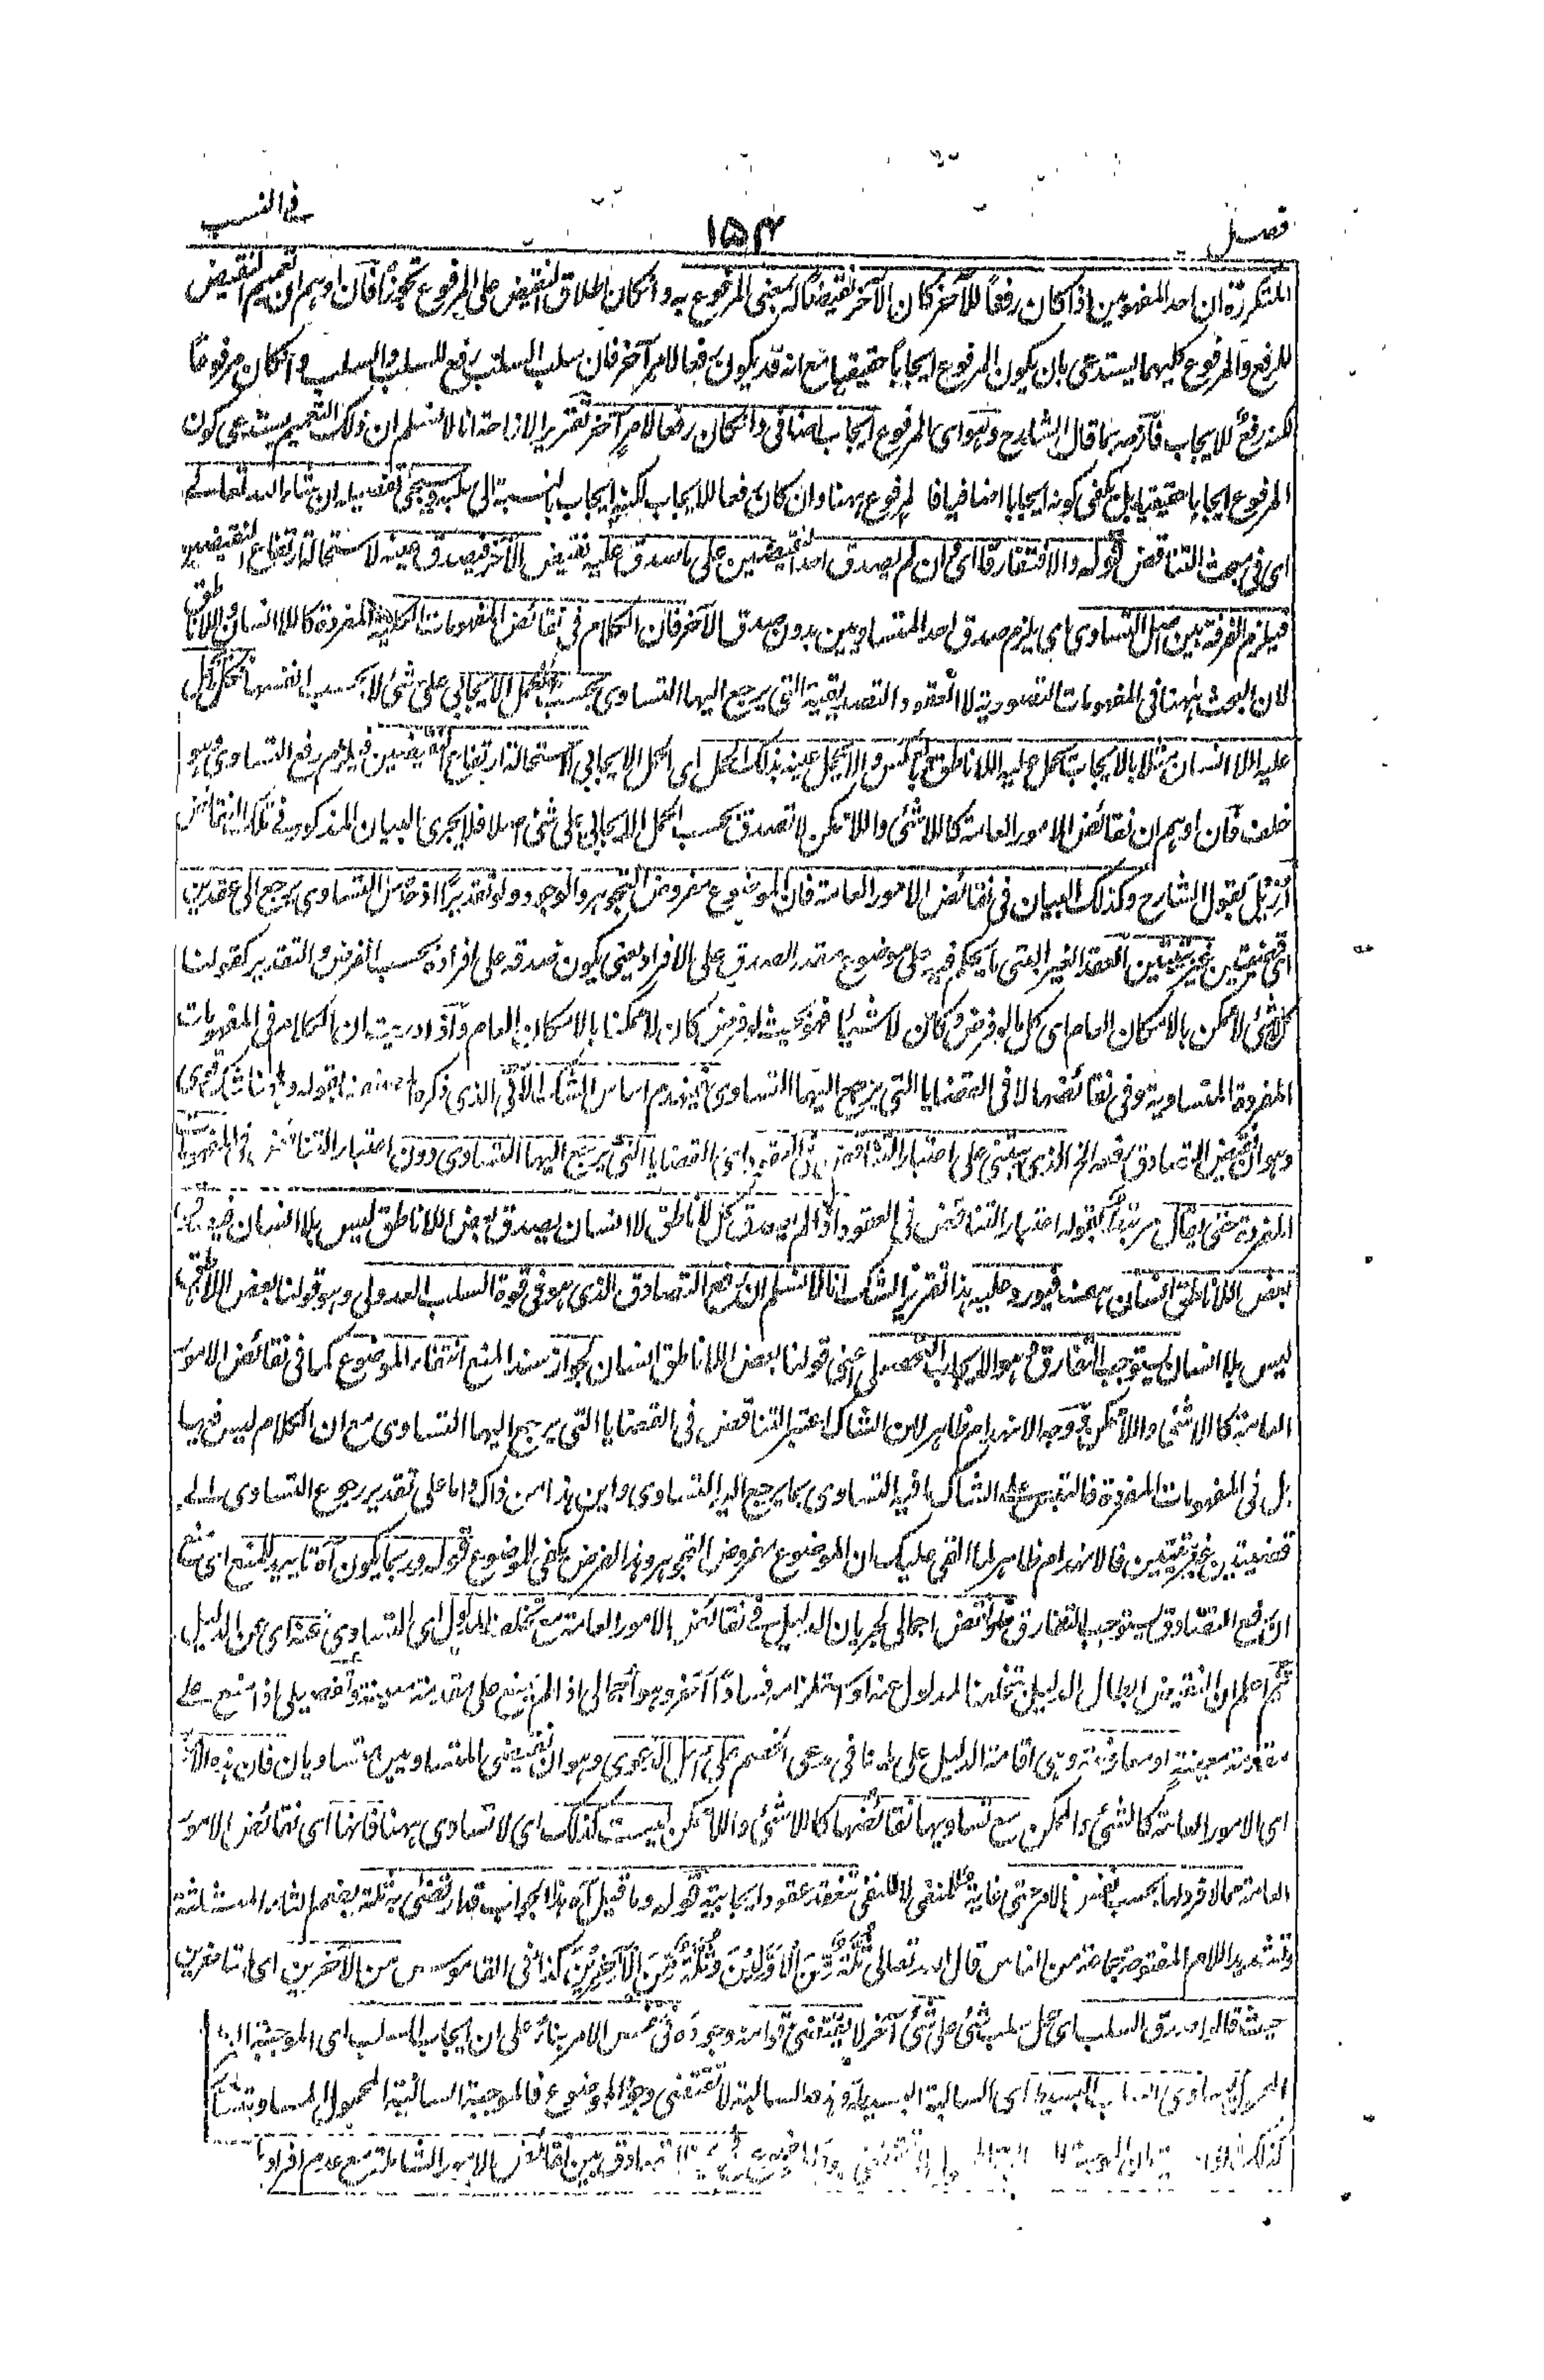 فصل ١٥٤ في النسب
المتكررة ان احد المفهومين اذا كان رفعاً للآخر كان الآخر نقيضاً له بمعنى المرفوع به وانكان اطلاق النقيض على المرفوع تجوزاً فان اوهم ان تعميم النقيض
للرفع والمرفوع كليهما يستدعى بان يكون المرفوع ايجاباً حقيقيا مع انه قد يكون رفعا لامر آخر فان سلب السلب رفع للسلب والسلب وانكان مرفوعاً
لكنه رفع للايجاب فازحه بما قال الشارح وهو اى المرفوع ايجاب اضافى وانكان رفعا لامر آخر تقرير الازاحة انا لا نسلم ان ذلك التعميم يستدعى كون
المرفوع ايجابا حقيقيا بل يكفى كونه ايجابا اضافيا فالمرفوع ههنا وان كان رفعا للايجاب لكنه ايجاب بالنسبة الى سلبه وسيجئ تفصيله ان شاء الله تعالى
اى فى بحث التناقض قوله والا فتفارقا اى ان لم يصدق احد النقيضين على ما صدق عليه نقيض الآخر فيصدق عينه لاستحالة ارتفاع النقيضين
فيلزم الفرقة بين اصل التساوى اى يلزم صدق احد المتساويين بدون صدق الآخر فان الكلام فى نقائض المفهومات الكلية المفردة كاللاانسان واللاناطق
لان البحث ههنا فى المفهومات التصورية لا العقود التصديقية التى يرجع اليها التساوى بحسب الحمل الايجابى على شئ لا بحسب انفسها فكل ما يحمل
عليه اللاانسان مثلا بالايجاب يحمل عليه اللاناطق وبالعكس والا يحمل عينه بذلك الحمل اى الحمل الايجابى لاستحالة ارتفاع النقيضين فيلزم رفع التساوى هو
خلف فان اوهم ان نقائض الامور العامة كاللاشئ واللاممكن لا تصدق بحسب الحمل الايجابى على شئ اصلا فلا يجرى البيان المذكور فى تلك النقائض
ازيل بقول الشارح وكذلك البيان فى نقائض الامور العامة فان الموضوع مفروض التجوهر والوجود ولو تقديراً اذ هذا التساوى يرجع الى عقدين
اى قضيتين غير بتيتين العقد الغير البتى ما يحكم فيه على موضوع مقدر الصدق على الافراد يعنى يكون صدقه على افراده بحسب الفرض والتقدير كقولنا
كل لاشئ لاممكن بالامكان العام اى كل ما لو فرض وكان لاشيئا فهو بحيث لو فرض كان لاممكنا بالامكان العام واذا دريت ان الكلام فى المفهومات
المفردة المتساوية وفى نقائضها لا فى القضايا التى يرجع اليها التساوى فينهدم اساس الشك الذى ذكره المصنف بقوله وههنا شك قوى
وهو ان نقيض التصادق رفعه الخ الذى يبتنى على اعتبار التناقض فى العقود اى القضايا التى يرجع اليها التساوى دون اعتبار التناقض فى المفهومات
المفردة حتى يقال مرتبط بقوله اعتبار التناقض فى العقود اذا لم يصدق كل لاناطق لاانسان يصدق بعض اللاناطق ليس بلاانسان فيكون
بعض اللاناطق انسان هف فيورد عليه هذا تقرير الشك انا لا نسلم ان رفع التصادق الذى هو فى قوة السلب العدولى وهو قولنا بعض اللاناطق
ليس بلاانسان يستوجب التفارق وهو الايجاب التحصيلى اعنى قولنا بعض اللاناطق انسان لجواز سند المنع انتفاء الموضوع كما فى نقائض الامور
العامة كاللاشئ واللاممكن وجه الانهدام ظاهر لان الشاك اعتبر التناقض فى القضايا التى يرجع اليها التساوى مع ان الكلام ليس فيها
بل فى المفهومات المفردة فالتبس على الشاك ما فيه التساوى بما يرجع اليه التساوى واين هذا من ذاك واما على تقدير رجوع التساوى الى
قضيتين غير بتيتين فالانهدام ظاهر لما القى عليك ان الموضوع مفروض التجوهر وهذا الفرض يكفى للموضوع قوله وربما يكون آه تاييد للمنع اى منع
ان رفع التصادق يستوجب التفارق او نقض اجمالى لجريان الدليل فى نقائض الامور العامة مع تخلف المدلول اى التساوى عنه اى عن الدليل
ثم اعلم ان النقض ابطال الدليل بتخلف المدلول عنه او استلزامه فسادا آخر وهو اجمالى اذا لم يمنع على مقدمة معينة وتفصيلى اذا منع على
مقدمة معينة او معارضة وهى اقامة الدليل على ما ينافى مدعى الخصم على اصل الدعوى وهو ان نقيضى المتساويين متساويان فان هذه الامور
اى الامور العامة كالشئ والممكن مع تساويها نقائضها كاللاشئ واللاممكن ليست كذلك اى لا تساوى ههنا فانها اى نقائض الامور
العامة مما لا فرد لها بحسب نفس الامر حتى غاية للنفى لا للنفى تنعقد عقود ايجابية قوله وما قيل آه هذا الجواب قد ارتضى به ثلة بضم الثاء المثلثة
وتشديد اللام المفتوحة جماعة من الناس قال الله تعالى ثُلَّةٌ مِّنَ الْأَوَّلِينَ وَثُلَّةٌ مِّنَ الْآخِرِينَ كذا فى القاموس من الآخرين اى المتاخرين
حيث قالوا صدق السلب اى حمل سلب شئ على شئ آخر لا يقتضى قوامه وجوده فى نفس الامر بناء على ان ايجاب السلب اى الموجبة السالبة
المحمول يساوى السلب البسيط اى السالبة البسيطة وهذه السالبة لا تقتضى وجود الموضوع فالموجبة السالبة المحمول المساوية لها
كذلك تصادق بين نقائض الامور الشاملة مع عدم افرادها